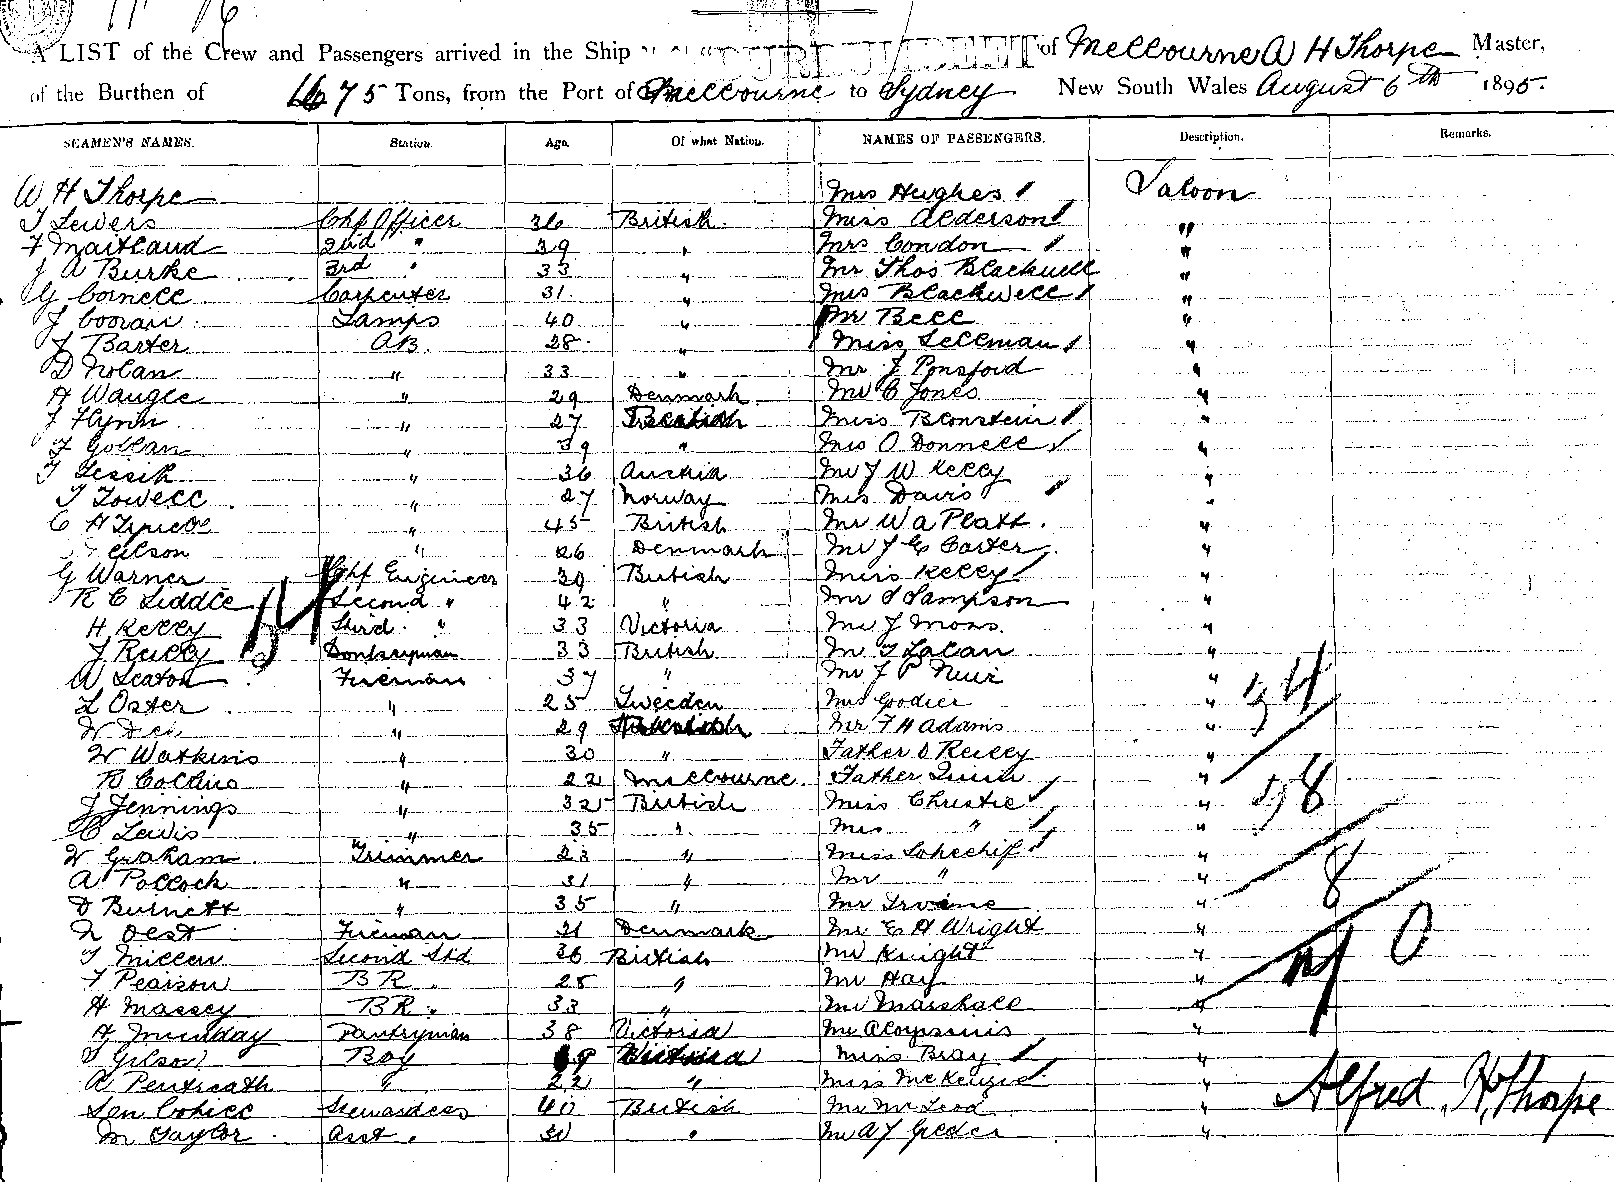 A LIST of the Crew and Passengers arrived in the Ship BURRUMBEET of Melbourne A H Thorpe Master,
of the Burthen of 1675 Tons, from the Port of Melbourne to Sydney New South Wales August 6th 1895.
SEAMEN'S NAMES. Station. Age. Of what Nation. NAMES OF PASSENGERS. Description. Remarks.
W H Thorpe Mrs Hughes Saloon
T Lewers Chf Officer 36 British Miss Alderson "
F Maitland 2nd " 39 " Mrs Condon "
J A Burke 3rd " 33 " Mr Thos Blackwell "
G Cornell Carpenter 31 " Mrs Blackwell "
J Lamps 40 " Mr Bell "
J Barter AB. 28 " Miss Sellman "
D Nolan " 33 " Mr J Ponsford "
A " 29 Denmark Mr C Jones "
J Flynn " 27 British Miss Blonstein "
" 39 " Mrs O Donnell "
" 36 Austria Mr J W Kelly "
T Towell " 27 Norway Mrs Davis "
C H " 45 British Mr W A Platt "
" 26 Denmark Mr J E Carter "
G Warner Chf Engineer 39 British Miss Kelly "
R C Liddle Second " 42 " Mr S Sampson "
H Kelly Third " 33 Victoria Mr J Moss "
J Reilly Donkeyman 33 British Mr T "
W Seaton Fireman 37 " Mr J P 34
L Oster " 25 Sweeden Mrs Goodier "
W " 29 Mr F H Adams "
W Watkins " 30 " Father O Reilly "
R Collins " 22 Melbourne Father Quinn "
J Jennings " 32 British Miss Christie " 38
C Lewis " 35 " Mrs " "
W Graham Trimmer 23 " Miss "
A Pollock " 31 " Mr " " 8
D Burnett " 35 " Mr Irvine "
Fireman 31 Denmark Mr E H Wright "
T Millen Second Std 36 British Mr Knight "
F Pearson BR 25 " Mr Hay "
H Massey BR 33 " Mr Marshall "
A Munday Pantryman 38 Victoria Mr "
Gilson Boy 19 Victoria Miss Bray "
A Pentreath " 22 " Miss McKenzie "
Stewardess 40 British Mr McLeod " Alfred H Thorpe
M Taylor Asst. " Mr A J "